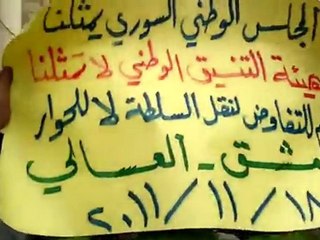 المجلس الوطني السوري يمثلنا
هيئة التنسيق الوطني لا تمثلنا
للتفاوض لنقل السلطة لا للحوار
دمشق - العسالي
٢٠١١/١١/١٨